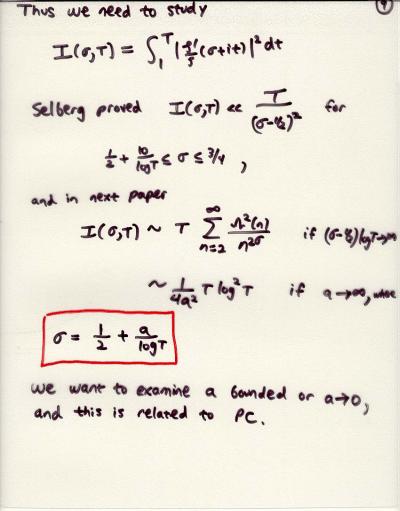 Thus we need to study
9
I(σ,T) = ∫₁ᵀ |ζ'/ζ (σ+it)|² dt
Selberg proved I(σ,T) ≪ T/(σ-½)² for
½ + 10/log T ≤ σ ≤ 3/4 ,
and in next paper
I(σ,T) ~ T ∑_{n=2}^{∞} Λ²(n)/n^{2σ} if (σ-½)log T→∞
~ 1/4a² T log² T if a→∞, where
σ = ½ + a/log T
We want to examine a bounded or a→0,
and this is related to PC.